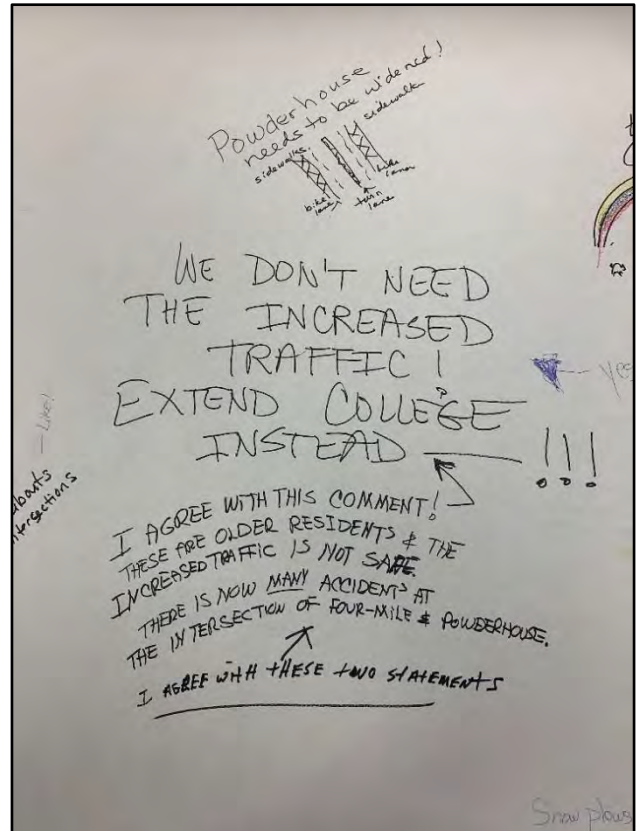 Powderhouse
needs to be widened!
sidewalks
sidewalk
bike
lane
turn
lane
bike
WE DON'T NEED
THE INCREASED
TRAFFIC!
EXTEND COLLEGE
INSTEAD — !!!
yes
— LIKE!
I AGREE WITH THIS COMMENT!
THESE ARE OLDER RESIDENTS & THE
INCREASED TRAFFIC IS NOT SAFE.
THERE IS NOW MANY ACCIDENTS AT
THE INTERSECTION OF FOUR-MILE & POWDERHOUSE.
I AGREE WITH THESE TWO STATEMENTS
Snow plows